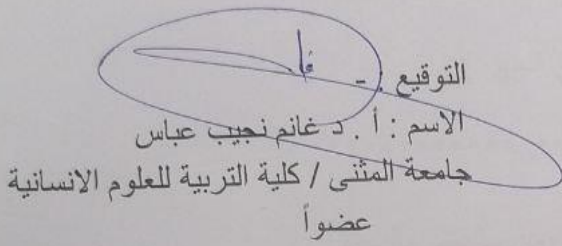 التوقيع : -
الاسم : أ . د غانم نجيب عباس
جامعة المثنى / كلية التربية للعلوم الانسانية
عضواً